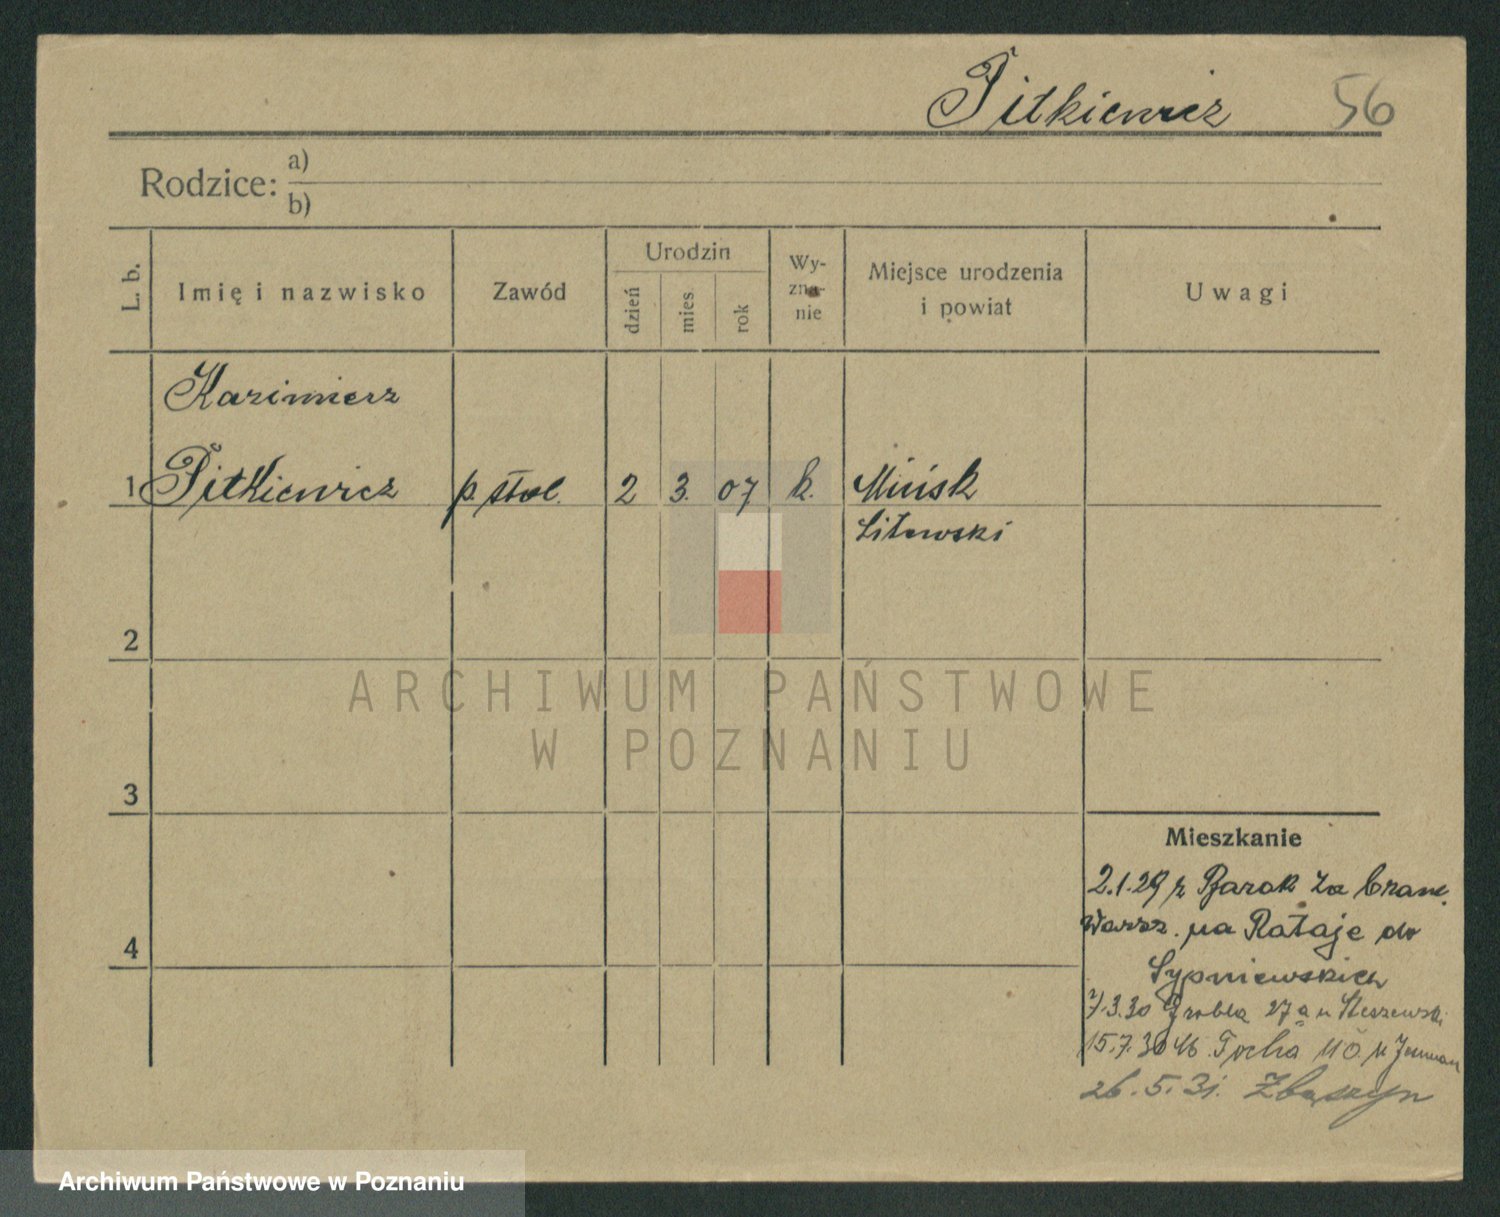 Pitkiewicz 56
Rodzice: a)
b)
L. b.
Imię i nazwisko
Zawód
Urodzin
dzień
mies.
rok
Wy-
zna-
nie
Miejsce urodzenia
i powiat
Uwagi
Kazimierz
1 Pitkiewicz p. stol. 2 3. 07 k. Mińsk
Litewski
2
3
4
Mieszkanie
2.1.29 r Barak za bram.
Warsz. na Rataje do
Sypniewskich
7.3.30 Grobla 27a u
15.7.30
26.5.31. Zbąszyn
ARCHIWUM PAŃSTWOWE
W POZNANIU
Archiwum Państwowe w Poznaniu